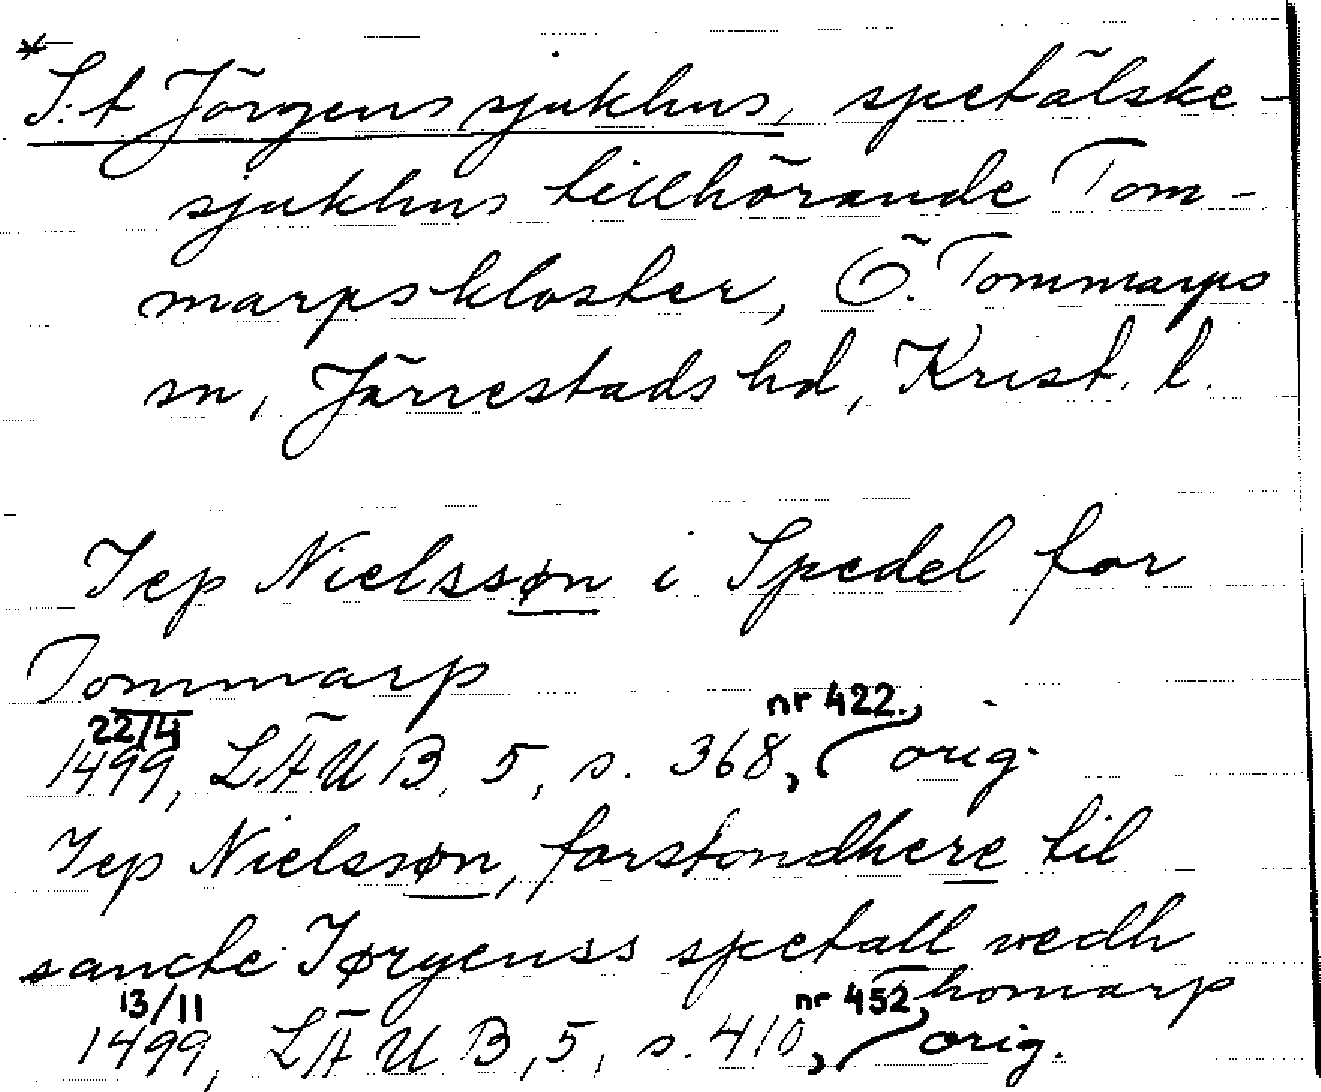 * S:t Jörgens sjukhus, spetälske-
sjukhus tillhörande Tom-
marpskloster, Ö. Tommarps
sn, Järrestads hd, Krist. l.
Iep Nielssøn i Spedel for
Tommarp
22/4 nr 422.,
1499, LÄUB, 5, s. 368, orig.
Iep Nielssøn, forstondhere til
sancte Iørgenss spetall wedh
Thomarp
13/11 nr 452,
1499, LÄUB, 5, s. 410, orig.